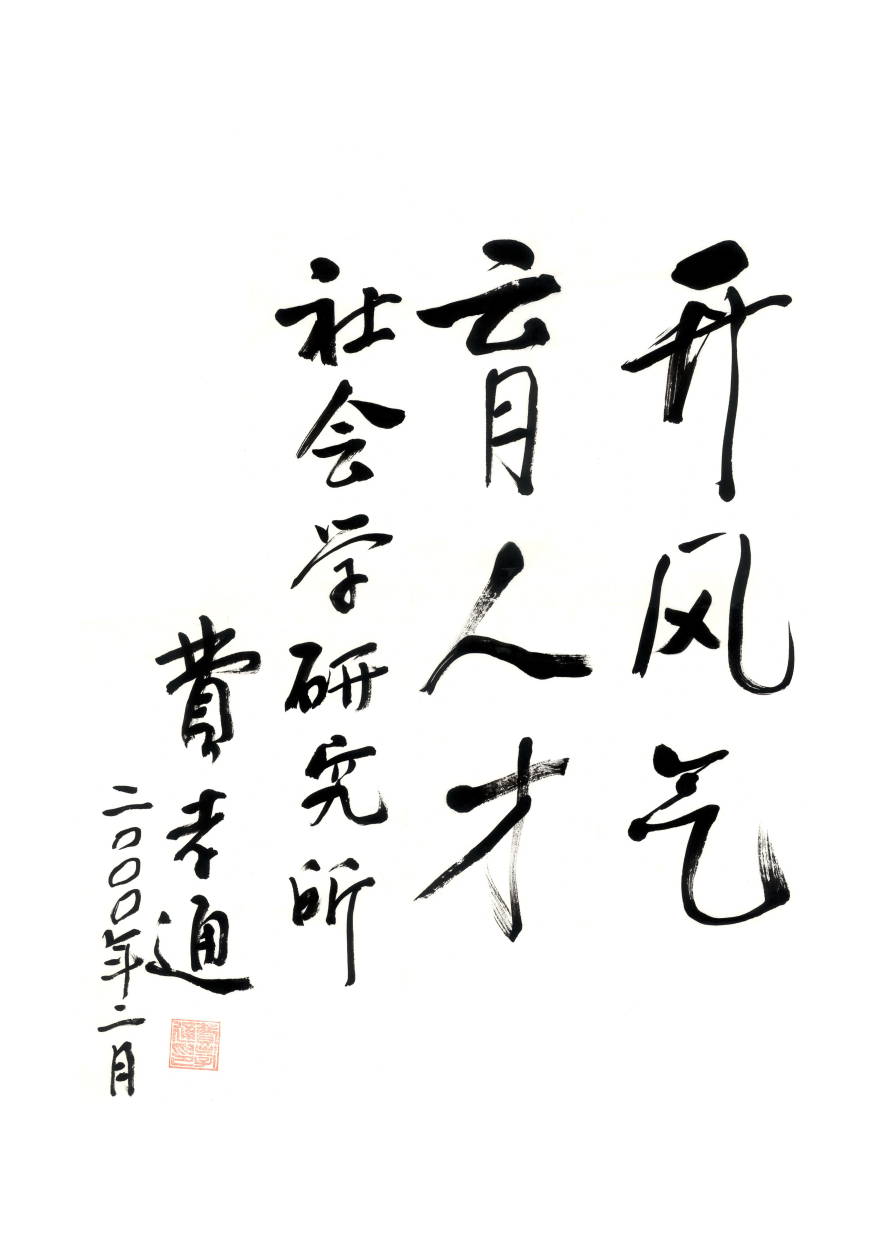 开风气
育人才
社会学研究所
費孝通
二〇〇〇年二月